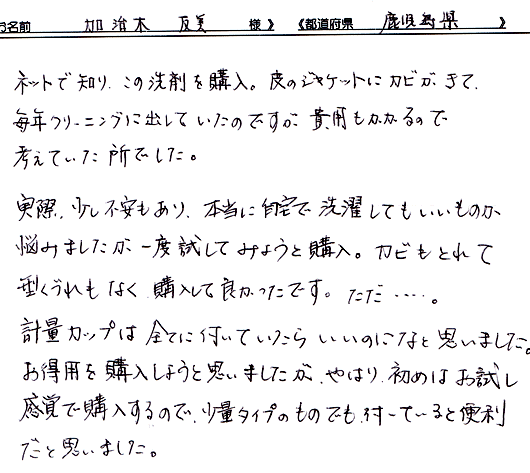 お名前 加治木 友美 様》 《都道府県 鹿児島県 》
ネットで知り、この洗剤を購入。皮のジャケットにカビがきて、
毎年クリーニングに出していたのですが費用もかかるので
考えていた所でした。
実際、少し不安もあり、本当に自宅で洗濯してもいいものか
悩みましたが一度試してみようと購入。カビもとれて
型くずれもなく、購入して良かったです。ただ‥‥。
計量カップは全てに付いていたらいいのになと思いました。
お得用を購入しようと思いましたが、やはり、初めはお試し
感覚で購入するので、少量タイプのものでも、付いていると便利
だと思いました。